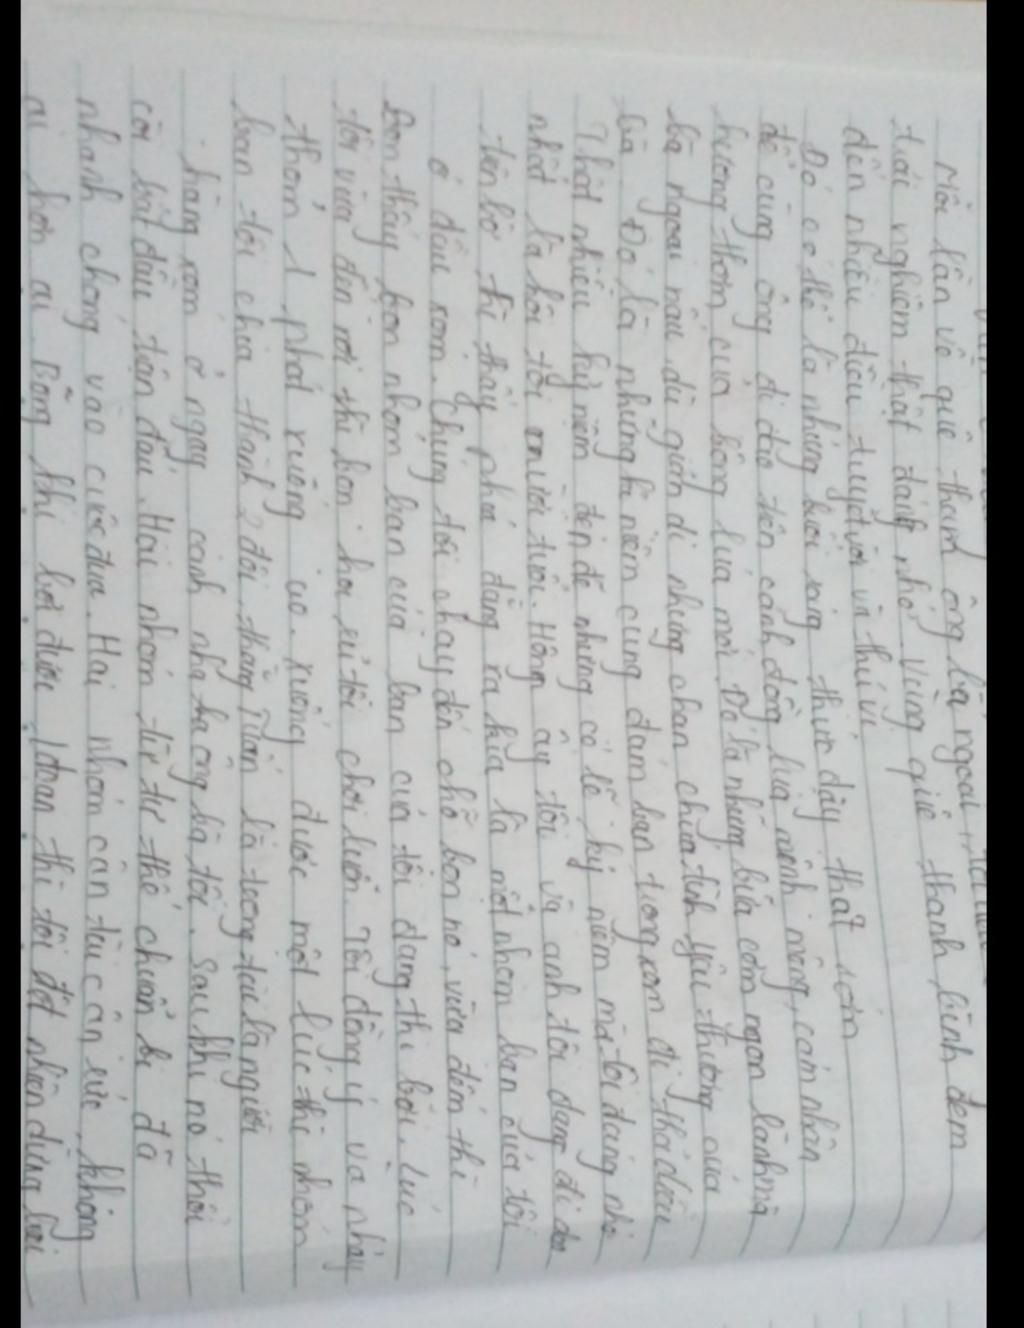 Mỗi lần về quê thăm ông bà ngoại
trải nghiệm thật đáng nhớ. Vùng quê thanh bình đem
đến nhiều điều tuyệt vời và thú vị
Đó có thể là những buổi sáng thức dậy thật sớm
để cùng ông đi dạo trên cánh đồng lúa mênh mông, cảm nhận
hương thơm của bông lúa mới. Đó là những bữa cơm ngon lành mà
bà ngoại nấu, dù giản dị nhưng chan chứa tình yêu thương của
bà. Đó là những kỉ niệm cùng đám bạn trong xóm đi thả diều
Thật nhiều kỷ niệm đẹp đẽ nhưng có lẽ kỷ niệm mà tôi đáng nhớ
nhất là hồi tôi mười tuổi. Hôm ấy tôi và anh tôi đang đi dạo
trên bờ thì thấy phía đằng xa kia là một nhóm bạn của tôi
ở đầu xóm. Chúng tôi chạy đến chỗ bọn nó, vừa đến thì
bọn thấy bọn nhóm bạn của bạn của tôi đang thi bơi. Lúc
tôi vừa đến nơi thì bọn hỏi rủ tôi chơi luôn. Tôi đồng ý và nhảy
1 phát xuống ao. xuống được một lúc thì nhóm
bạn tôi chia thành 2 đội, thằng Tuấn là trọng tài là người
hàng xóm ở ngay cạnh nhà ông bà tôi. Sau khi nó thổi
còi bắt đầu trận đấu. Hai nhóm từ tư thế chuẩn bị đã
nhanh chóng vào cuộc đua. Hai nhóm cân tài cân sức, không
ai hơn ai. Bỗng khi bơi được đoạn thì tôi đột nhiên dừng lại